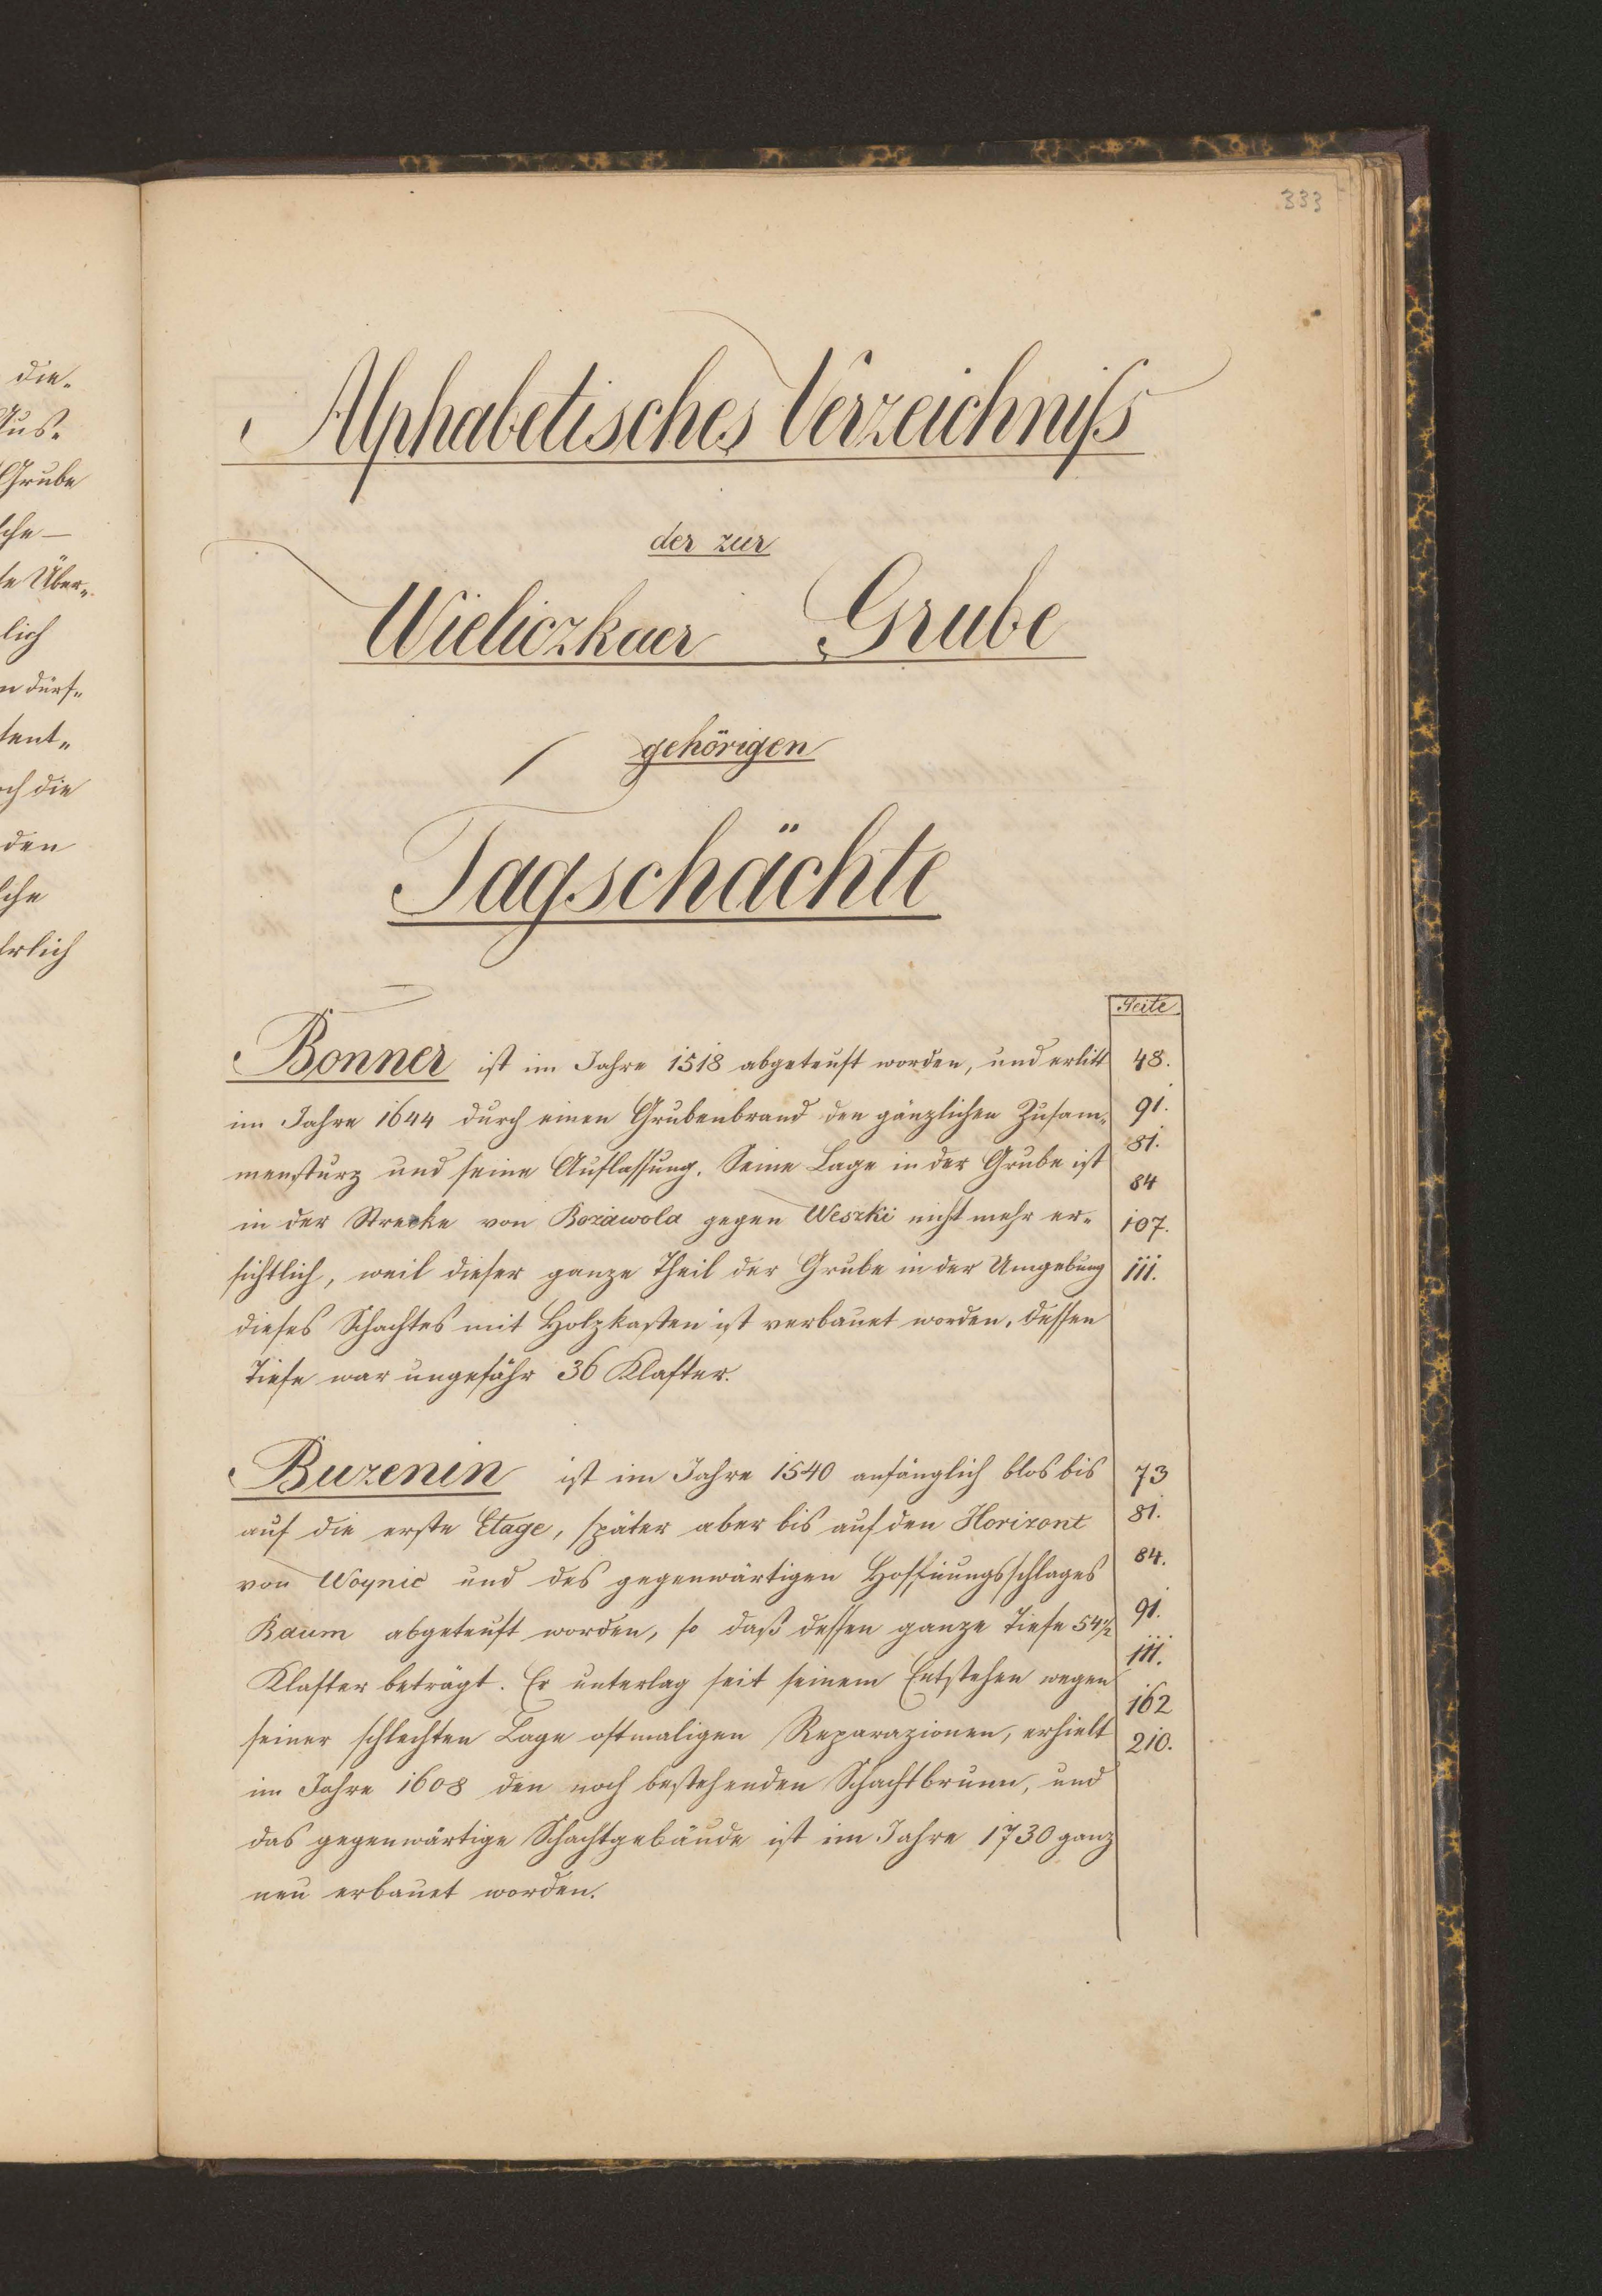 333
die-
Aus-
Grube
sche —
te Über-
lich
n dürf-
tent-
ch die
den
sche
hrlich
Alphabetisches Verzeichniß
der zur
Wieliczkaer Grube
gehörigen
Tagschächte
Seite
Bonner ist im Jahre 1518 abgeteuft worden, und erlitt 48.
im Jahre 1644 durch einen Grubenbrand den gänzlichen Zusam- 91.
mensturz und seine Auflassung. Seine Lage in der Grube ist 81.
84
in der Strecke von Bozawola gegen Weszki nicht mehr er- 107.
sichtlich, weil dieser ganze Theil der Grube in der Umgebung 111.
dieses Schachtes mit Holzkasten ist verbauet worden. Dessen
Tiefe war ungefähr 36 Klafter.
Buzenin ist im Jahre 1540 anfänglich blos bis 73
auf die erste Etage, später aber bis auf den Horizont 81.
von Woynic und des gegenwärtigen Hoffnungsschlages 84.
Baum abgeteuft worden, so daß dessen ganze Tiefe 54 1/2 91.
Klafter beträgt. Er unterlag seit seinem Entstehen wegen 111.
162
seiner schlechten Lage oftmaligen Reparazionen, erhielt 210.
im Jahre 1608 den noch bestehenden Schachtbrunn, und
das gegenwärtige Schachtgebäude ist im Jahre 1730 ganz
neu erbauet worden.